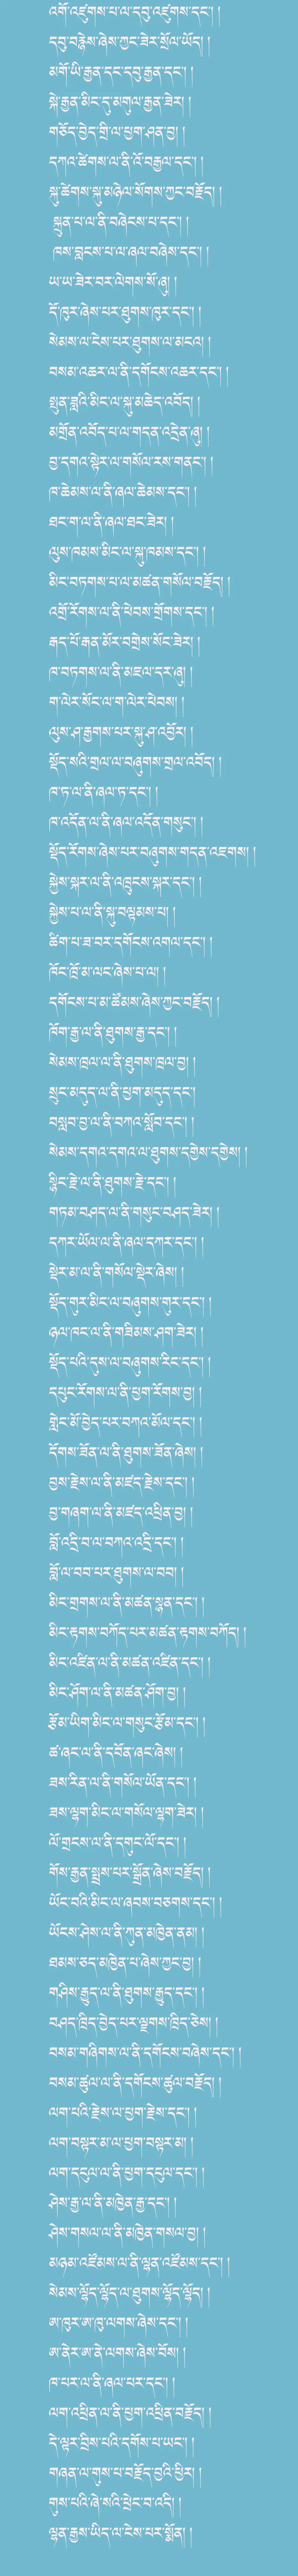 འགོ་འཛུགས་པ་ལ་དབུ་འཛུགས་དང་། །
དབུ་བརྙེས་ཞེས་ཀྱང་ཟེར་སྲོལ་ཡོད། །
མགོ་ཡི་རྒྱན་དང་དབུ་རྒྱན་དང་། །
སྐེ་རྒྱན་མིང་དུ་མགུལ་རྒྱན་ཟེར། །
གཅོད་བྱེད་གྲི་ལ་ཕྱག་ཤན་བྱ། །
དཀའ་ཚེགས་ལ་ནི་འོ་བརྒྱལ་དང་། །
སྐུ་ཚེགས་སྐུ་མཉེལ་སོགས་ཀྱང་བརྗོད། །
སྐྲུན་པ་ལ་ནི་བཞེངས་པ་དང་། །
ཁས་བླངས་པ་ལ་ཞལ་བཞེས་དང་། །
ཡ་ཡ་ཟེར་བར་ལེགས་སོ་ཞུ། །
དོ་ཁུར་ཞེས་པར་ཐུགས་ཁུར་དང་། །
སེམས་ལ་ངེས་པར་ཐུགས་ལ་མངའ། །
བསམ་འཆར་ལ་ནི་དགོངས་འཆར་དང་། །
སྤུན་ཟླའི་མིང་ལ་སྐུ་མཆེད་འབོད། །
མགྲོན་འབོད་པ་ལ་གདན་འདྲེན་ཞུ། །
བྱ་དགའ་སྟེར་ལ་གསོལ་རས་གནང་། །
ཁ་ཆེམས་ལ་ནི་ཞལ་ཆེམས་དང་། །
ཐང་ག་ལ་ནི་ཞལ་ཐང་ཟེར། །
ལུས་ཁམས་མིང་ལ་སྐུ་ཁམས་དང་། །
མིང་བཏགས་པ་ལ་མཚན་གསོལ་བརྗོད། །
འགྲོ་རོགས་ལ་ནི་ཕེབས་གྲོགས་དང་། །
རྒད་པོ་རྒན་མོར་བགྲེས་སོང་ཟེར། །
ཁ་བཏགས་ལ་ནི་མཇལ་དར་ཞུ། །
ག་ལེར་སོང་ལ་ག་ལེར་ཕེབས། །
ལུས་ཤ་རྒྱགས་པར་སྐུ་ཤ་འབྱོར། །
སྡོད་སའི་གྲལ་ལ་བཞུགས་གྲལ་འབོད། །
ཁ་ཏ་ལ་ནི་ཞལ་ཏ་དང་། །
ཁ་འདོན་ལ་ནི་ཞལ་འདོན་གསུང་། །
སྡོད་རོགས་ཞེས་པར་བཞུགས་གདན་འཇགས། །
སྐྱེས་སྐར་ལ་ནི་འཁྲུངས་སྐར་དང་། །
སྐྱེས་པ་ལ་ནི་སྐུ་བལྟམས་པ། །
ཚིག་པ་ཟ་བར་དགོངས་འགལ་དང་། །
ཁོང་ཁྲོ་མ་ལང་ཞེས་པ་ལ། །
དགོངས་པ་མ་ཚོམས་ཞེས་ཀྱང་བརྗོད། །
ཁོག་རྒྱ་ལ་ནི་ཐུགས་རྒྱ་དང་། །
སེམས་ཁྲལ་ལ་ནི་ཐུགས་ཁྲལ་བྱ། །
སྲུང་མདུད་ལ་ནི་ཕྱག་མདུད་དང་།
བསླབ་བྱ་ལ་ནི་བཀའ་སློབ་དང་། །
སེམས་དགའ་དགའ་ལ་ཐུགས་དགྱེས་དགྱེས། །
སྙིང་རྗེ་ལ་ནི་ཐུགས་རྗེ་དང་། །
གཏམ་བཤད་ལ་ནི་གསུང་བཤད་ཟེར། །
དཀར་ཡོལ་ལ་ནི་ཞལ་དཀར་དང་། །
སྡེར་མ་ལ་ནི་གསོལ་སྡེར་ཞེས། །
སྡོད་གུར་མིང་ལ་བཞུགས་གུར་དང་། །
ཉལ་ཁང་ལ་ནི་གཟིམས་ཤག་ཟེར། །
སྡོད་པའི་དུས་ལ་བཞུགས་རིང་དང་། །
དཔུང་རོགས་ལ་ནི་ཕྱག་རོགས་བྱ། །
གླེང་མོ་བྱེད་པར་བཀའ་མོལ་དང་། །
དོགས་ཟོན་ལ་ནི་ཐུགས་ཟོན་ཞེས། །
བྱས་རྗེས་ལ་ནི་མཛད་རྗེས་དང་། །
བྱ་གཞག་ལ་ནི་མཛད་འཕྲིན་བྱ། །
བློ་འདྲི་བ་ལ་བཀའ་འདྲི་དང་། །
བློ་ལ་བབ་པར་ཐུགས་ལ་བབ། །
མིང་གྲགས་ལ་ནི་མཚན་སྙན་དང་། །
མིང་རྟགས་བཀོད་པར་མཚན་རྟགས་བཀོད། །
མིང་འཛིན་ལ་ནི་མཚན་འཛིན་དང་། །
མིང་ཤོག་ལ་ནི་མཚན་ཤོག་བྱ། །
རྩོམ་ཡིག་མིང་ལ་གསུང་རྩོམ་དང་། །
ཚ་ཞང་ལ་ནི་དབོན་ཞང་ཞེས། །
ཟས་རིན་ལ་ནི་གསོལ་ཡོན་དང་། །
ཟས་ལྷག་མིང་ལ་གསོལ་ལྷག་ཟེར། །
ལོ་གྲངས་ལ་ནི་དགུང་ལོ་དང་། །
གོས་རྒྱན་སྤྲས་པར་སྤྲོན་ཞེས་བརྗོད། །
ཡོང་བའི་མིང་ལ་ཞབས་བཅགས་དང་། །
ཡོངས་ཤེས་ལ་ནི་ཀུན་མཁྱེན་ནམ། །
ཐམས་ཅད་མཁྱེན་པ་ཞེས་ཀྱང་བྱ། །
གཤིས་རྒྱུད་ལ་ནི་ཐུགས་རྒྱུད་དང་། །
བཤད་ཁྲིད་བྱེད་པར་ལྗགས་ཁྲིད་ཅེས། །
བསམ་གཞིགས་ལ་ནི་དགོངས་བཞེས་དང་། །
བསམ་ཚུལ་ལ་ནི་དགོངས་ཚུལ་བརྗོད། །
ལག་པའི་རྗེས་ལ་ཕྱག་རྗེས་དང་། །
ལག་བསྟར་མ་ལ་ཕྱག་བསྟར་མ། །
ལག་དངུལ་ལ་ནི་ཕྱག་དངུལ་དང་། །
ཤེས་རྒྱ་ལ་ནི་མཁྱེན་རྒྱ་དང་། །
ཤེས་གསལ་ལ་ནི་མཁྱེན་གསལ་བྱ། །
མཉམ་འཛོམས་ལ་ནི་ལྷན་འཛོམས་དང་། །
སེམས་ལྷོད་ལྷོད་ལ་ཐུགས་ལྷོད་ལྷོད། །
ཨ་ཁུར་ཨ་ཁུ་ལགས་ཞེས་དང་། །
ཨ་ནེར་ཨ་ནེ་ལགས་ཞེས་བོས། །
ཁ་པར་ལ་ནི་ཞལ་པར་དང་། །
ལག་འཕྲིན་ལ་ནི་ཕྱག་འཕྲིན་བརྗོད། །
དེ་ལྟར་བྲིས་པའི་དགོས་པ་ཡང་། །
གཞན་ལ་གུས་པ་བརྗོད་བྱའི་ཕྱིར། །
གུས་པའི་ཞེ་སའི་ཕྲེང་བ་འདི། །
ལྷན་རྒྱས་ཡིད་ལ་ངེས་པར་སྨོན། །